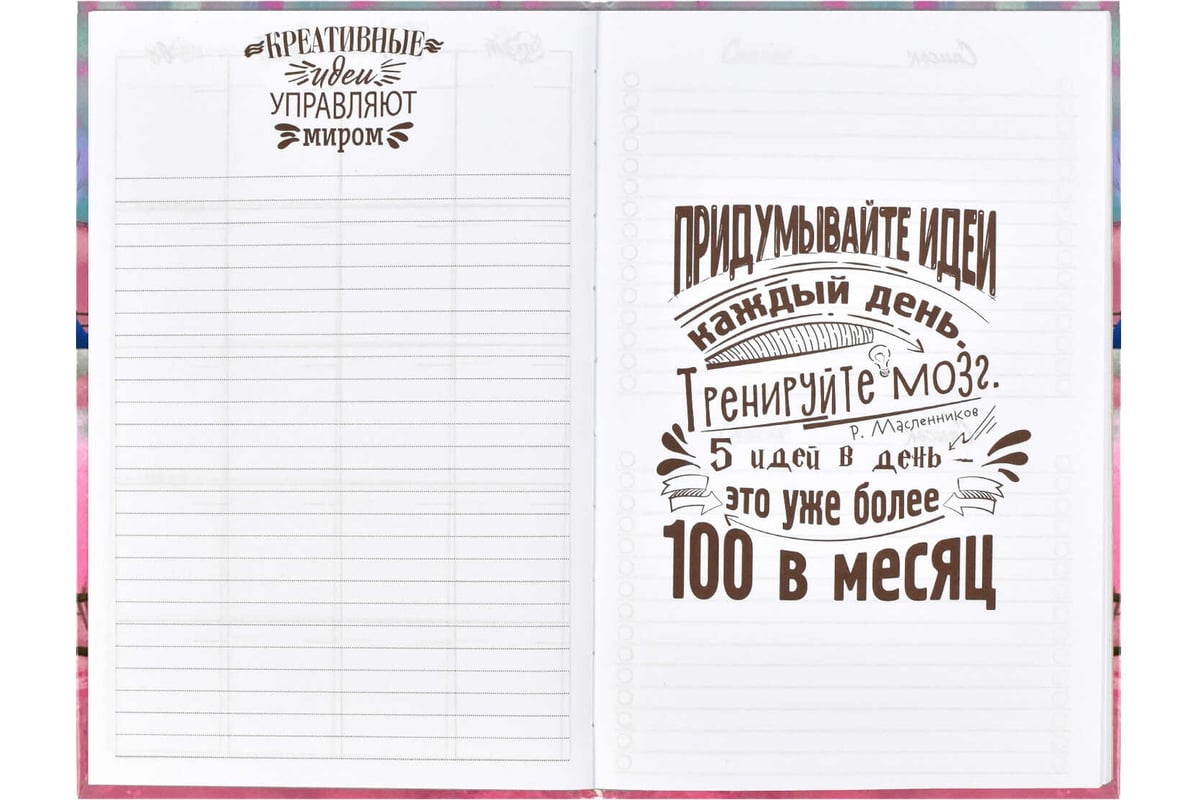 КРЕАТИВНЫЕ
идеи
УПРАВЛЯЮТ
миром
Список
ПРИДУМЫВАЙТЕ ИДЕИ
каждый день.
Тренируйте мозг.
Р. Масленников
5 идей в день –
это уже более
100 в месяц